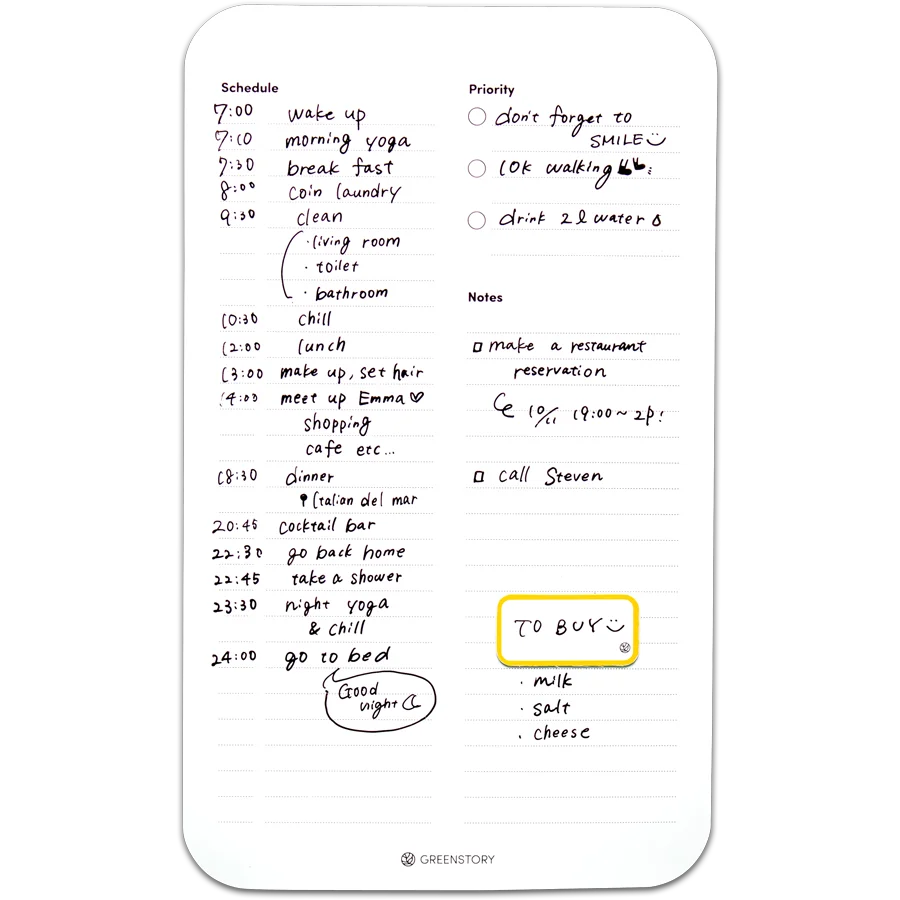 Schedule
7:00 wake up
7:10 morning yoga
7:30 break fast
8:00 coin laundry
9:30 clean
· living room
· toilet
· bathroom
10:30 chill
12:00 lunch
13:00 make up, set hair
14:00 meet up Emma♡
shopping
cafe etc...
18:30 dinner
Italian del mar
20:45 cocktail bar
22:30 go back home
22:45 take a shower
23:30 night yoga
& chill
24:00 go to bed
Good
night
Priority
don't forget to
SMILE
10k walking
drink 2l water
Notes
make a restaurant
reservation
10/11 19:00~ 2p!
call Steven
TO BUY
· milk
· salt
· cheese
GREENSTORY